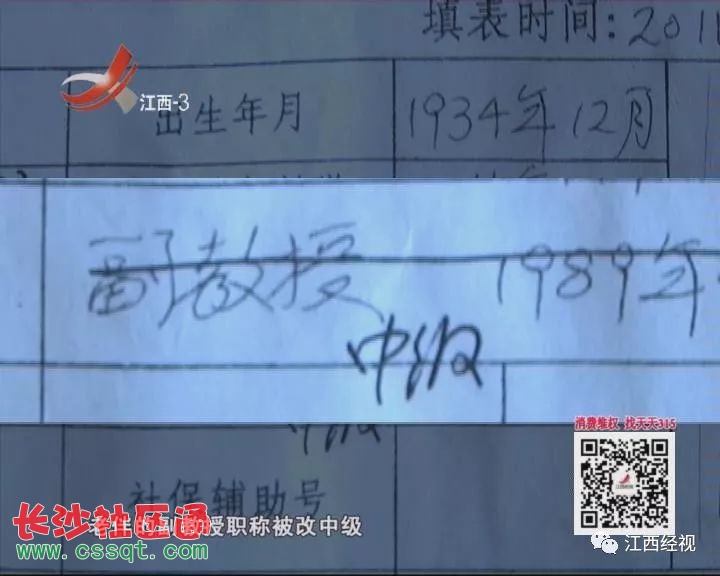 填表时间:2011
江西-3
出生年月 1934年12月
副教授 1989年
中级
消费维权 找天天315
中级
社保辅助号
老伴的副教授职称被改中级
长沙社区通
www.cssqt.com
江西经视